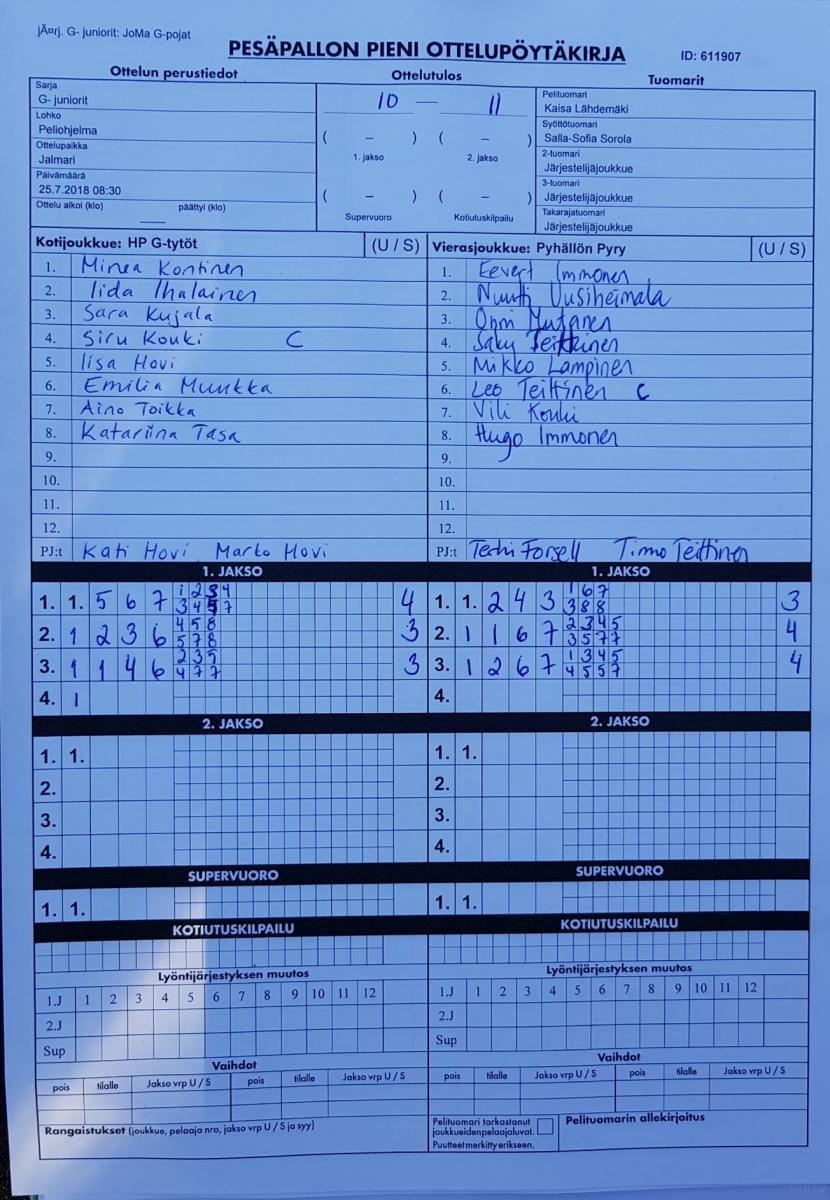 jÃ¤rj. G- juniorit: JoMa G-pojat
PESÄPALLON PIENI OTTELUPÖYTÄKIRJA
ID: 611907
Ottelun perustiedot
Ottelutulos
Tuomarit
Sarja
G- juniorit
Lohko
Peliohjelma
Ottelupaikka
Jalmari
Päivämäärä
25.7.2018 08:30
Ottelu alkoi (klo) päättyi (klo)
10 — 11
( – ) ( – )
1. jakso 2. jakso
( – ) ( – )
Supervuoro Kotiutuskilpailu
Pelituomari
Kaisa Lähdemäki
Syöttötuomari
Salla-Sofia Sorola
2-tuomari
Järjestelijäjoukkue
3-tuomari
Järjestelijäjoukkue
Takarajatuomari
Järjestelijäjoukkue
Kotijoukkue: HP G-tytöt (U / S)
1. Minea Kontinen
2. Iida Ihalainen
3. Sara Kujala
4. Siru Kouki C
5. Iisa Hovi
6. Emilia Muukka
7. Aino Toikka
8. Katariina Tasa
9.
10.
11.
12.
PJ:t Kati Hovi Marko Hovi
Vierasjoukkue: Pyhällön Pyry (U / S)
1. Eevert Immonen
2. Nuutti Uusiheimala
3. Onni Mutanen
4. Saku Teittinen
5. Mikko Lampinen
6. Leo Teittinen C
7. Vili Kouki
8. Hugo Immonen
9.
10.
11.
12.
PJ:t Forsell Timo Teittinen
1. JAKSO
1. 1. 5 6 7 1 2 3 4 4
3 4 5 7
2. 1 2 3 6 4 5 8 3
5 7 8
3. 1 1 4 6 2 3 5 3
4 7 7
4. 1
1. JAKSO
1. 1. 2 4 3 1 6 7 3
3 8 8
2. 1 1 6 7 2 3 4 5 4
3 5 7 7
3. 1 2 6 7 1 3 4 5 4
4 5 5 7
4.
2. JAKSO
1. 1.
2.
3.
4.
2. JAKSO
1. 1.
2.
3.
4.
SUPERVUORO
1. 1.
SUPERVUORO
1. 1.
KOTIUTUSKILPAILU
KOTIUTUSKILPAILU
Lyöntijärjestyksen muutos
1.J 1 2 3 4 5 6 7 8 9 10 11 12
2.J
Sup
Lyöntijärjestyksen muutos
1.J 1 2 3 4 5 6 7 8 9 10 11 12
2.J
Sup
Vaihdot
pois tilalle Jakso vrp U / S pois tilalle Jakso vrp U / S
Vaihdot
pois tilalle Jakso vrp U / S pois tilalle Jakso vrp U / S
Rangaistukset (joukkue, pelaaja nro, jakso vrp U / S ja syy)
Pelituomari tarkastanut
joukkueidenpelaajaluvat.
Puutteet merkitty erikseen.
Pelituomarin allekirjoitus